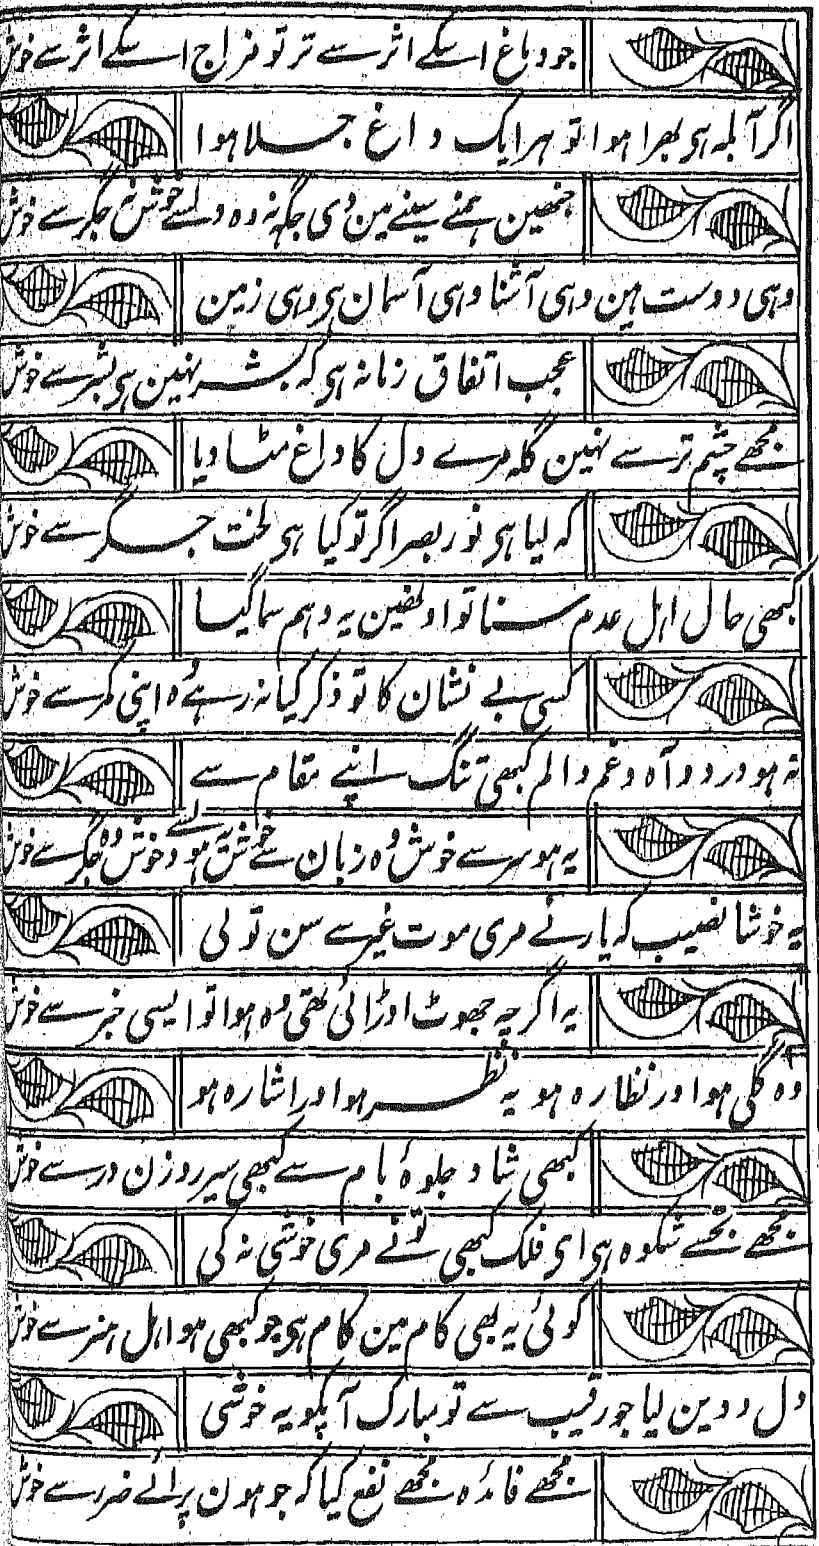 جو دماغ اسکے اثر سے تر تو مزاج اسکے اثر سے خوش
اگر آبلہ ہی بھرا ہوا تو ہر ایک داغ جلا ہوا
جنھین ہمنے سینے مین دی جگہ نہ وہ دلسے خوش نہ جگر سے خوش
وہی دوست ہین وہی آشنا وہی آسمان ہی وہی زمین
عجب اتفاق زمانہ ہی کہ بشر نہین ہی بشر سے خوش
مجھے چشم تر سے نہین گلہ مرے دل کا داغ مٹا دیا
کہ لیا ہی نور بصر اگر تو کیا ہی لخت جگر سے خوش
کبھی حال اہل عدم سنا تو اونھین یہ وہم سما گیا
کسی بے نشان کا تو ذکر کیا نہ رہے وہ اپنی کمر سے خوش
نہ ہو درد و آہ و غم و الم کبھی تنگ اپنے مقام سے
یہ ہو سر سے خوش وہ زبان سے خوش یہ ہو دلسے خوش وہ جگر سے خوش
یہ خوشا نصیب کہ یار نے مری موت غیر سے سن تو لی
یہ اگرچہ جھوٹ اوڑائی تھی وہ ہوا تو ایسی خبر سے خوش
وہ گلی ہو اور نظارہ ہو یہ نظر ہو اور اشارہ ہو
کبھی شاد جلوۂ بام سے کبھی سیر روزن در سے خوش
مجھے تجھسے شکوہ ہی ای فلک کبھی تونے مری خوشی نہ کی
کوئی یہ بھی کام مین کام ہی جو کبھی ہو اہل ہنر سے خوش
دل و دین لیا جو رقیب سے تو مبارک آپکو یہ خوشی
مجھے فائدہ مجھے نفع کیا کہ جو ہون پرائے ضرر سے خوش